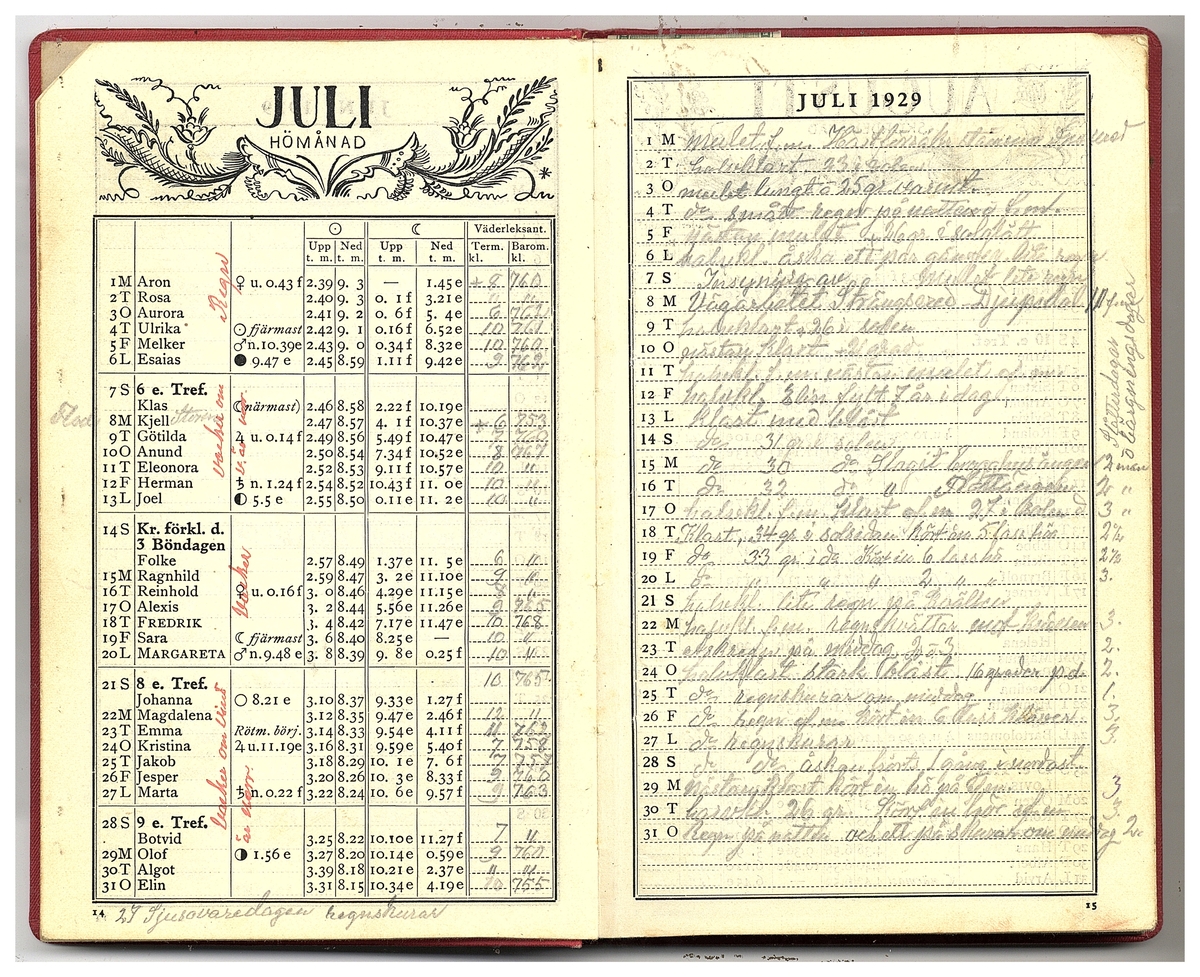 JULI
HÖMÅNAD
Väderleksant.
Upp Ned Upp Ned Term. Barom.
t. m. t. m. t. m. t. m. kl. kl.
1 M Aron ♀ u. 0.43 f 2.39 9. 3 — 1.45 e +8 760
2 T Rosa 2.40 9. 3 0. 1 f 3.21 e
3 O Aurora 2.41 9. 2 0. 6 f 5. 4 e 6
4 T Ulrika ☉ fjärmast 2.42 9. 1 0.16 f 6.52 e 10 761
5 F Melker ♂ n. 10.39 e 2.43 9. 0 0.34 f 8.32 e 10 760
6 L Esaias ● 9.47 e 2.45 8.59 1.11 f 9.42 e 9 762
Regn
7 S 6 e. Tref.
Klas ☾ närmast) 2.46 8.58 2.22 f 10.19 e
8 M Kjell 2.47 8.57 4. 1 f 10.37 e +6 753
9 T Götilda ♃ u. 0.14 f 2.49 8.56 5.49 f 10.47 e 9 760
10 O Anund 2.50 8.54 7.34 f 10.52 e 8
11 T Eleonora 2.52 8.53 9.11 f 10.57 e 10 "
12 F Herman ♄ n. 1.24 f 2.54 8.52 10.43 f 11. 0 e 10 "
13 L Joel ◐ 5.5 e 2.55 8.50 0.11 e 11. 2 e 10 "
vacker om
14 S Kr. förkl. d.
3 Böndagen
Folke 2.57 8.49 1.37 e 11. 5 e 6 "
15 M Ragnhild 2.59 8.47 3. 2 e 11.10 e 9 "
16 T Reinhold ♀ u. 0.16 f 3. 0 8.46 4.29 e 11.15 e 8 "
17 O Alexis 3. 2 8.44 5.56 e 11.26 e 9 765
18 T FREDRIK 3. 4 8.42 7.17 e 11.47 e 10 768
19 F Sara ☾ fjärmast 3. 6 8.40 8.25 e — 10 "
20 L MARGARETA ♂ n. 9.48 e 3. 8 8.39 9. 8 e 0.25 f 10 "
vacker
21 S 8 e. Tref. 10 765
Johanna ○ 8.21 e 3.10 8.37 9.33 e 1.27 f
22 M Magdalena 3.12 8.35 9.47 e 2.46 f 12 "
23 T Emma Rötm. börj. 3.14 8.33 9.54 e 4.11 f 11 762
24 O Kristina ♃ u. 11.19 e 3.16 8.31 9.59 e 5.40 f 7 758
25 T Jakob 3.18 8.29 10. 1 e 7. 6 f 7 758
26 F Jesper 3.20 8.26 10. 3 e 8.33 f 9 760
27 L Marta ♄ n. 0.22 f 3.22 8.24 10. 6 e 9.57 f 9 763
vacker om vind
är nor.
28 S 9 e. Tref.
Botvid 3.25 8.22 10.10 e 11.27 f 7 "
29 M Olof ◑ 1.56 e 3.27 8.20 10.14 e 0.59 e 9 760
30 T Algot 3.39 8.18 10.21 e 2.37 e " "
31 O Elin 3.31 8.15 10.34 e 4.19 e 10 755
14 27 Sjusovaredagen regnskurar
JULI 1929
1 M mulet f.m.
2 T halvklart 23 i solen
3 O mulet lungt o 25 gr. varmt.
4 T do smått regn på natten
5 F nästan mulet 26 gr i solgått
6 L halvkl. åska ett par gånger lite regn
7 S Försyning av mulet lite regn
8 M Vägarbetet Strångsered - Djupedal
9 T halvklart 26 gr solen
10 O nästan klart + 21 grad
11 T halvkl. f.m. nästan mulet ef. mid
12 F halvkl. fyllt 7 år i dag
13 L Klart med blåst
14 S do 31 gr i solen
15 M do 30 do Slagit ängen 2 man
16 T do 32 do " 2 "
17 O halvkl. f.m. klart ef.m. 27 i solen 3 "
18 T Klart, 34 gr i solsidan kört in 5 lass hö 2½
19 F do 33 gr. i do Kört in 6 lass hö 2½
20 L do " " " 2 " " 3.
21 S halvkl. lite regn på kvällen
22 M halvkl. f.m. regnskvättar mot kvällen 3.
23 T åskregn på middag 2 o 3 2.
24 O halvklart stark blåst 16 grader p.d. 2.
25 T do regnskurar om middag 1.
26 F do regn ef.m. kört in 6 lass klöver 3.
27 L do regnskurar 3.
28 S do do åskan hörts 1 gång i sydost
29 M nästan klart kört in hö på f.m. 3
30 T halvkl. 26 gr. ef.m. 3.
31 O Regn på natten och ett par skurar om middag 2.
Slåtterdagar
o bärgningsdagar
15